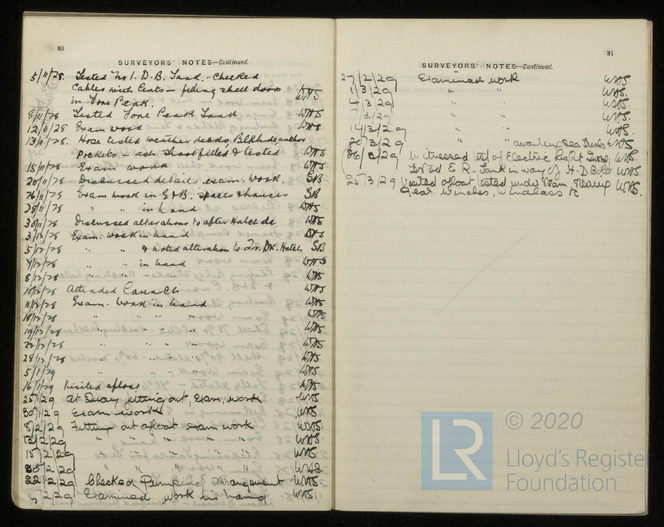 80
SURVEYORS' NOTES—Continued.
5/11/28. Tested No 1. D.B. Tank. - Checked
Cables with Cents - shell doors
in Fore Peak. WHS
8/11/28 Tested Fore Peak Tank WHS
12/11/28 Exam work WHS
13/11/28. Hose tested weather decks Blkhds anchor
pockets & tested WHS
15/11/28 Exam work WHS
20/11/28 Discussed detail exam. work. SB
26/11/28 Exam work in
28/11/28 " " in hand WHS
30/11/28 Discussed alterations to after Hatch WHS
3/12/28 Exam. work in hand WHS
5/12/28 " " & noted alteration to Hatch SB
7/12/28 " " in hand WHS
8/12/28 " " WHS
10/12/28 Attended WHS
11/12/28 Exam. Work in hand WHS
18/12/28 " " " " WHS
19/12/28 " " " WHS
22/12/28 " " " WHS
28/12/28 " " " WHS
5/1/29 " " " WHS
16/1/29 Visited afloat WHS
25/1/29 At Quay fitting out, Exam, work WHS
30/1/29 Exam work WHS
8/2/29 Fitting out afloat exam work WHS
" " " " WHS
15/2/29 " " " " WHS
" " " " WHS
22/2/29 Checked Pumping arrangement WHS
2/29 Examined work in hand WHS
81
SURVEYORS' NOTES—Continued.
27/2/29 Examined work WHS
1/3/29 " " WHS.
4/3/29 " " WHS.
" " WHS.
14/3/29 " " WHS.
20/3/29 " " awaiting Sea Trials WHS
26/3/29 Witnessed test of Electric Light WHS
Tested E.R. Tank in way of H.D. Bolts WHS
25/3/29 Vessel afloat tested under Steam, Steering WHS.
Gear Winches, windlass &c
LR © 2020
Lloyd's Register
Foundation